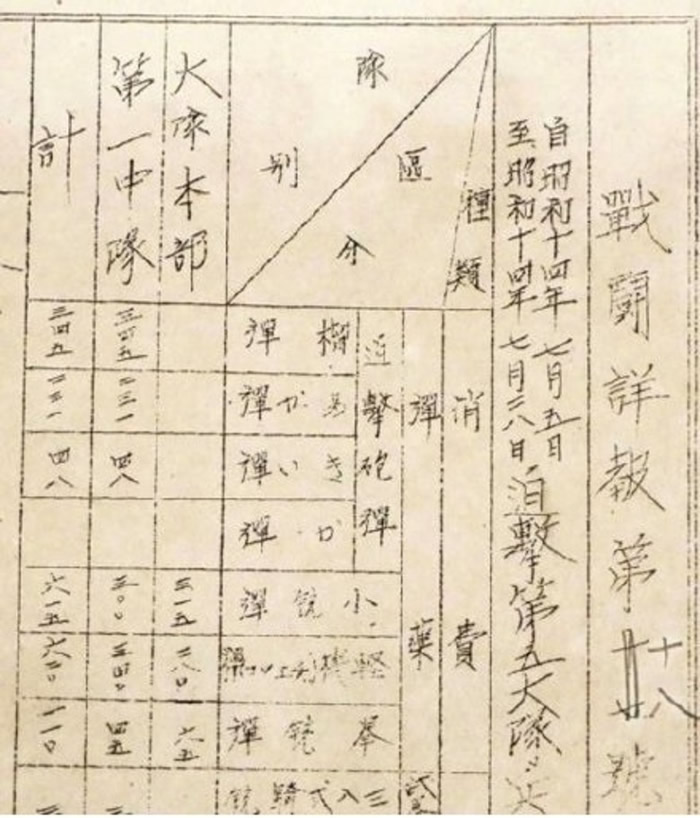 戰闘詳報第十八號
自昭和十四年七月五日
至昭和十四年七月二八日
迫擊第五大隊
種類
區分
隊別
消費
彈藥
迫擊砲彈
榴彈
あか彈
きい彈
か彈
小銃彈
輕機
拳銃彈
三八式騎銃
大隊本部
三一五
二八〇
六五
第一中隊
三四五
二三一
四八
三〇〇
三四〇
四五
計
三四五
二三一
四八
六一五
六二〇
一一〇